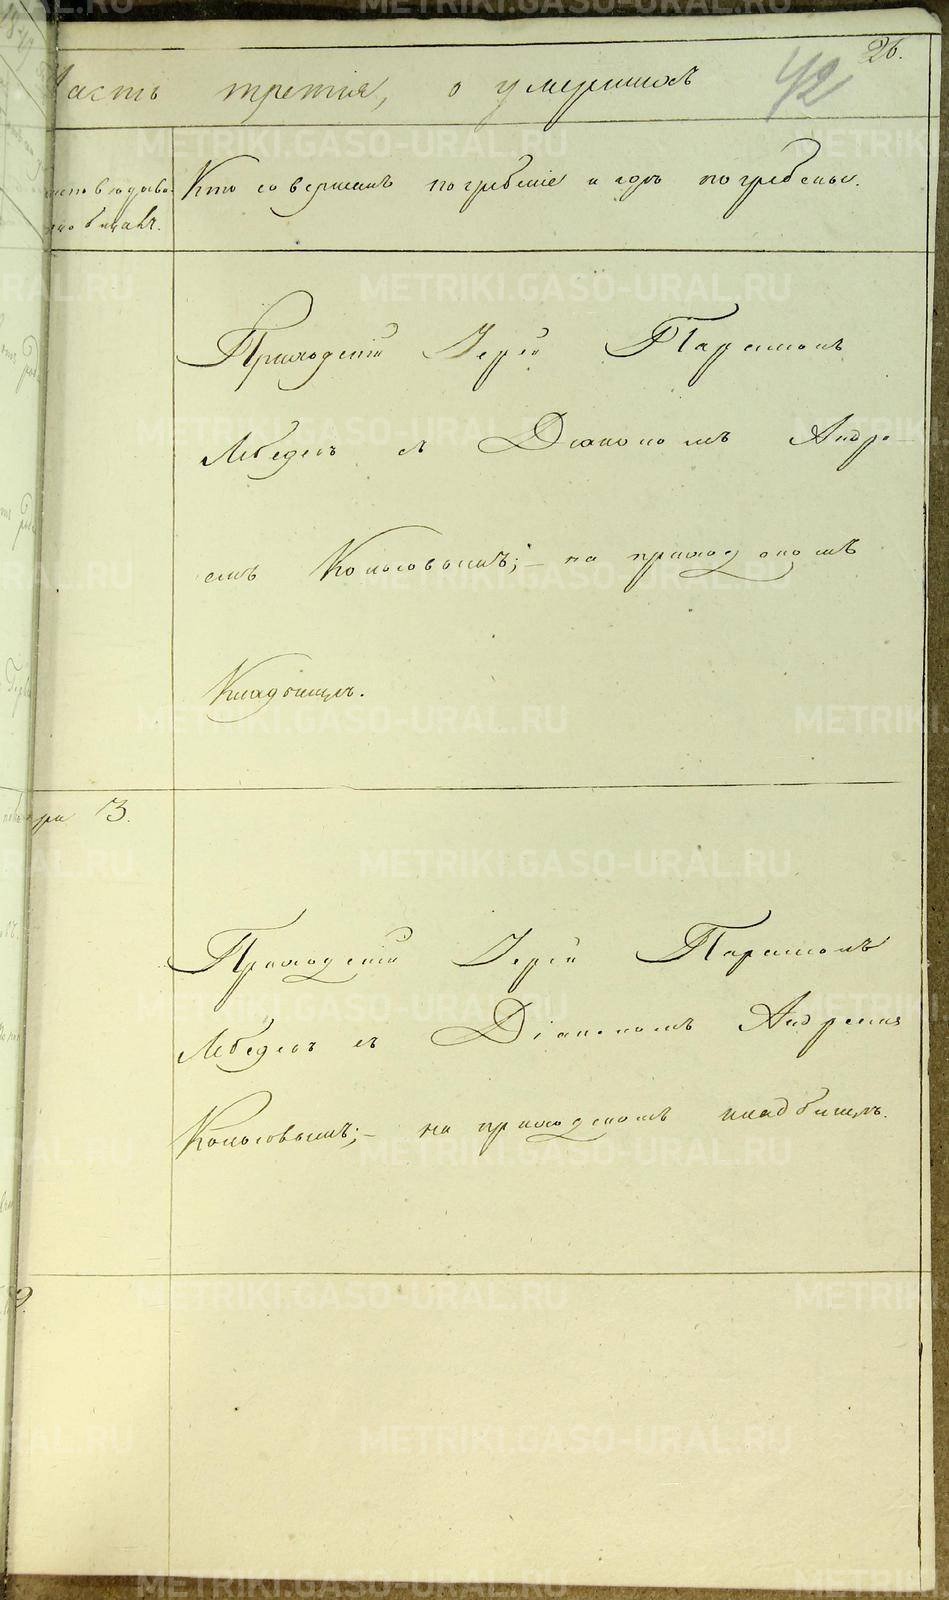 26.
42
Часть третія, о умершихъ
Кто совершалъ погребеніе и гдѣ погребены.
Приходскій Іерей Парамонъ
Лебедевъ съ Діакономъ Андре-
емъ Колосовымъ; – на приходскомъ
Кладбищѣ.
3.
Приходскій Іерей Парамонъ
Лебедевъ съ Діакономъ Андреемъ
Колосовымъ; – на приходскомъ кладбищѣ.
METRIKI.GASO-URAL.RU